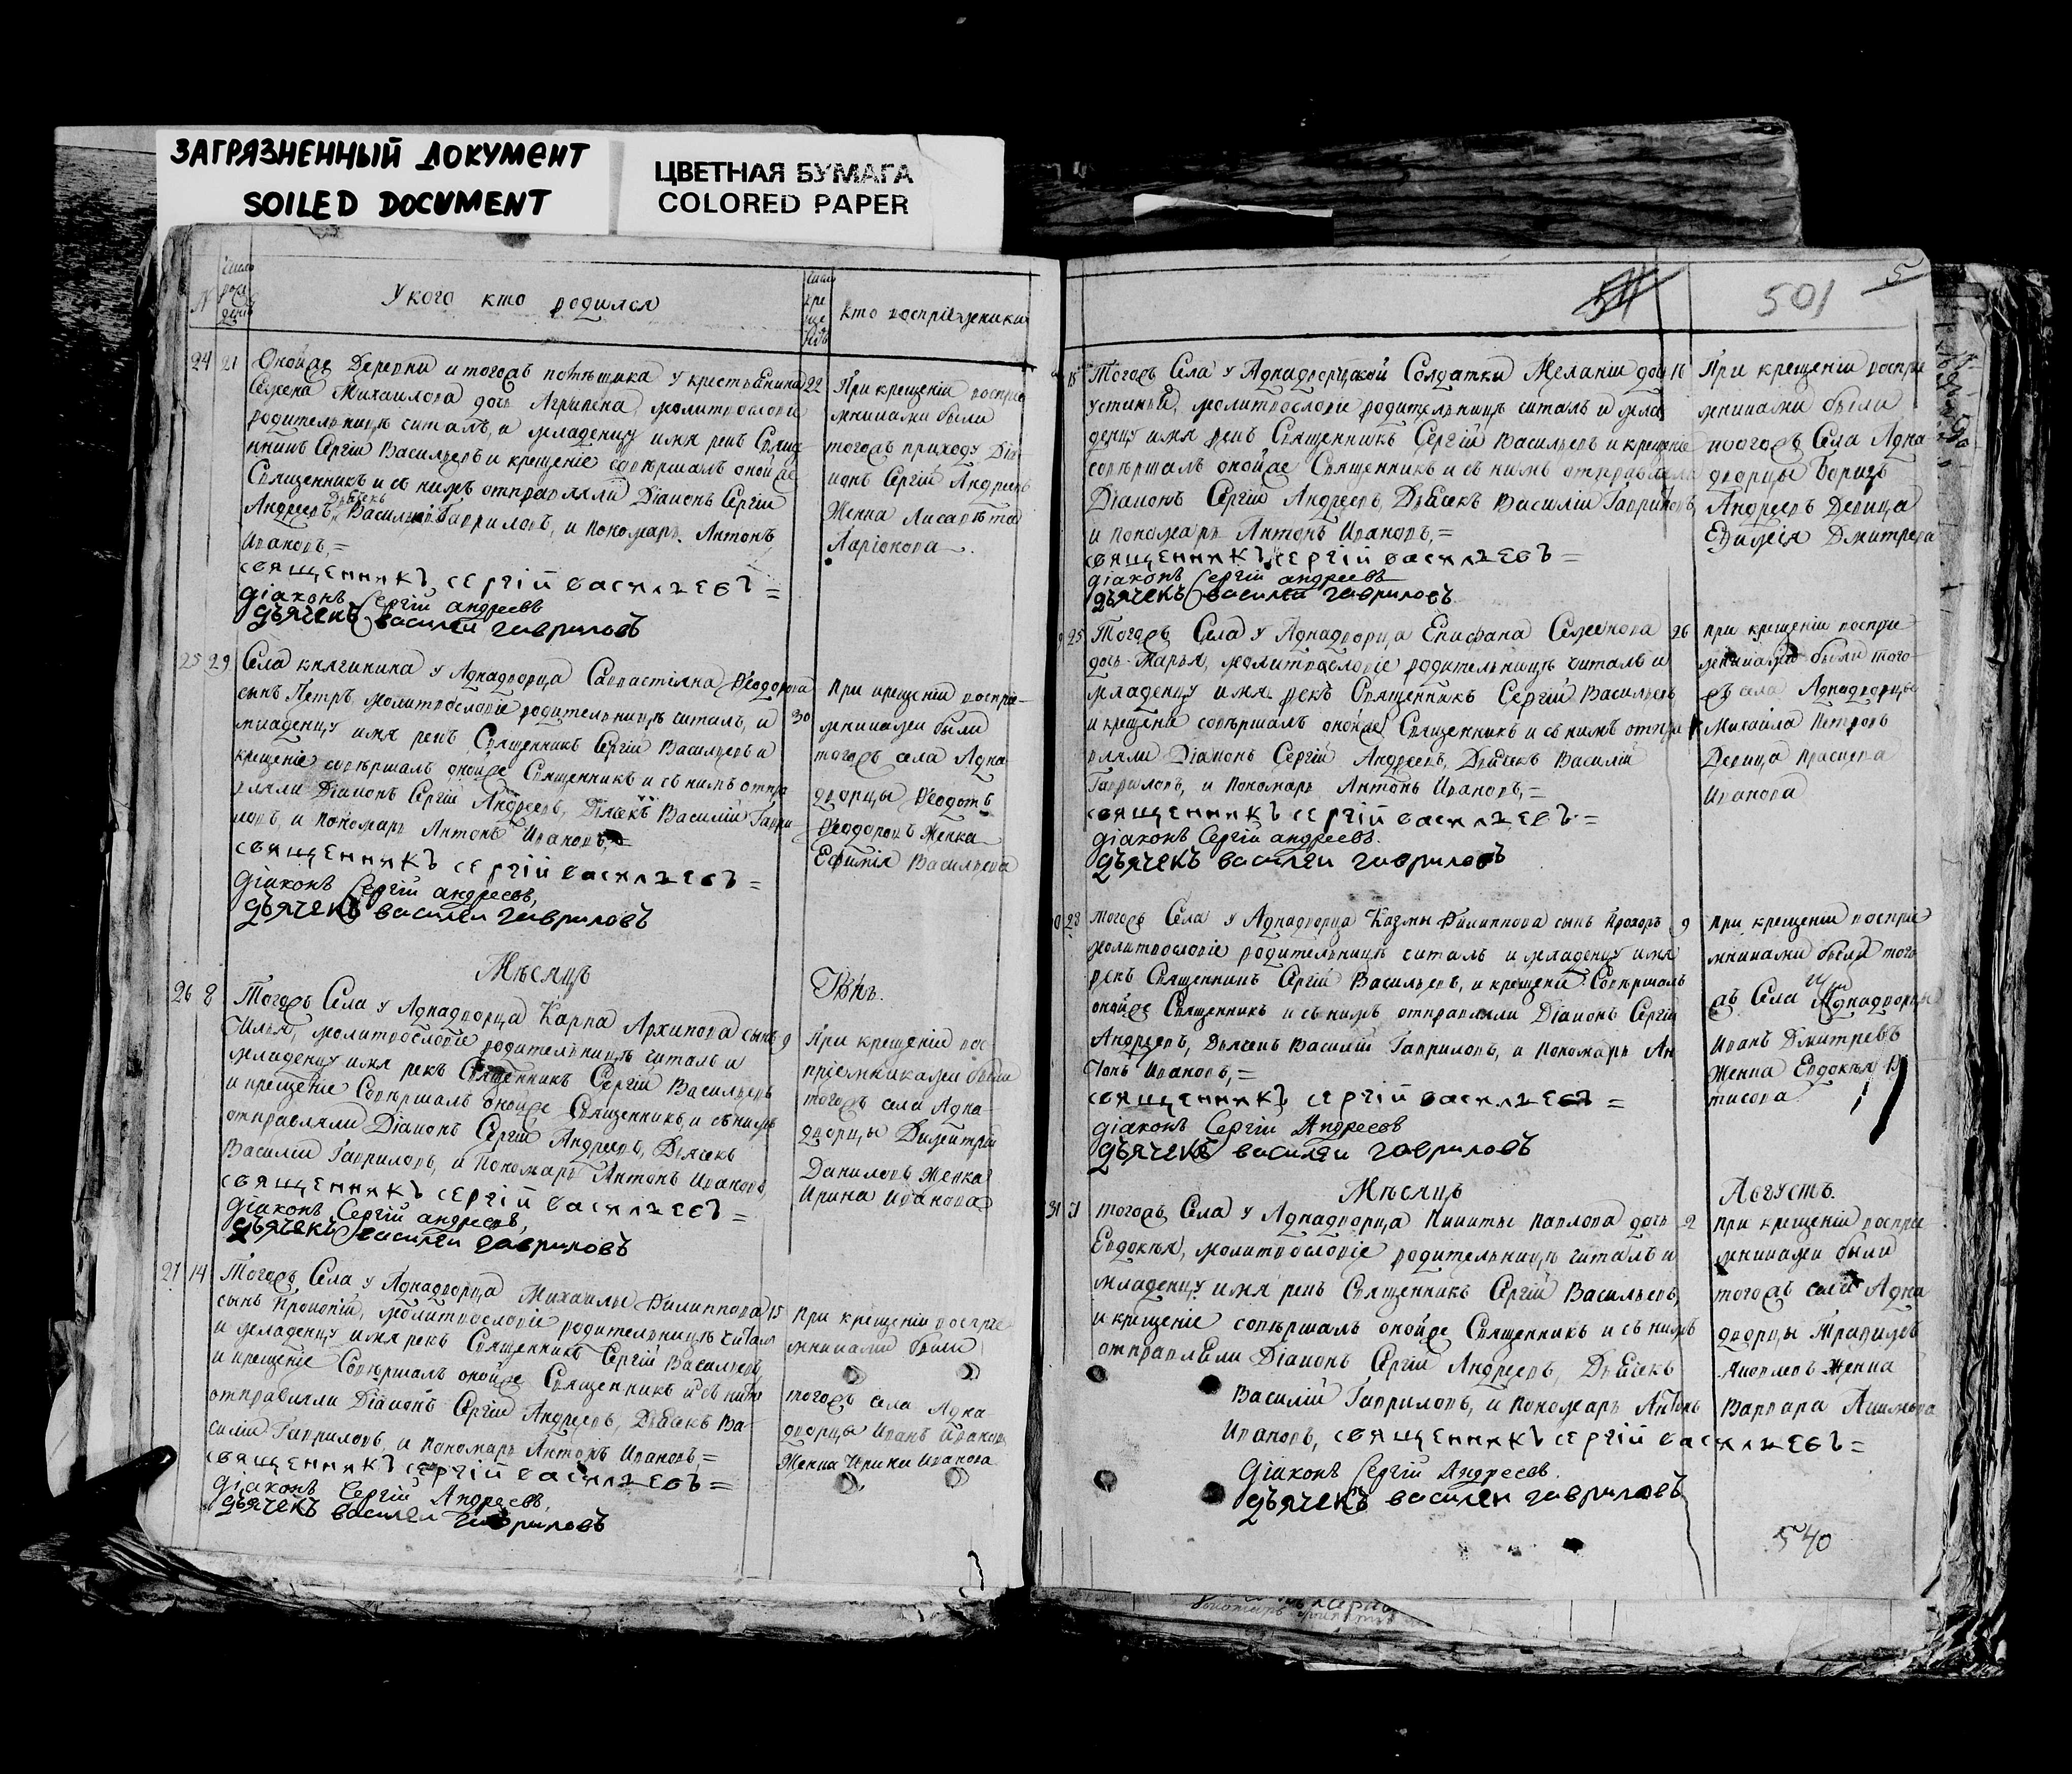 ЗАГРЯЗНЕННЫЙ ДОКУМЕНТ
SOILED DOCUMENT
ЦВЕТНАЯ БУМАГА
COLORED PAPER
У кого кто родился
кто восприемники
24 21 Онойже Деревни и тогожъ помѣщика у крестьянина 22
Семена Михаилова дочь Агрипена, молитвословіе
родительницѣ читалъ, и младенцу имя рекъ Свяще
нникъ Сергій Васильевъ и крещеніе совершалъ онойже
Священникъ и съ нимъ отправляли Діаконъ Сергій
Андреевъ, Дьячекъ Василий Гавриловъ, и Пономарь Антонъ
Ивановъ,=
священникъ сергій васильевъ=
діаконъ Сергій андреевъ
дьячекъ василеи гавриловъ
При крещеніи воспріе
мниками были
тогожъ приходу Діа
конъ Сергій Андреевъ
Женка Лисавѣта
Ларіонова
25 29 Села княгинина у Аднадворца Савастіяна Ѳеодорова
сынъ Петръ, молитвословіе родительницѣ читалъ, и 30
младенцу имя рекъ Священникъ Сергій Васильевъ и
крещеніе совершалъ онойже Священникъ и съ нимъ отпра
вляли Діаконъ Сергій Андреевъ, Дьячекъ Василій Гаври
ловъ, и Пономарь Антонъ Ивановъ,=
священникъ сергій васильевъ=
діаконъ Сергій андреевъ,
дьячекъ василеи гавриловъ
При крещеніи воспріе
мниками были
тогожъ села Адна
дворцы Ѳеодотъ
Ѳеодоровъ Женка
Ефимія Васильева
Мѣсяцъ
26 8 Тогожъ Села у Аднадворца Карпа Архипова сынъ 9
Илья, молитвословіе родительницѣ читалъ и
младенцу имя рекъ Священникъ Сергій Васильевъ
и крещеніе Совершалъ онойже Священникъ, и съ нимъ
отправляли Діаконъ Сергій Андреевъ, Дьячекъ
Василій Гавриловъ, и Пономарь Антонъ Ивановъ,
священникъ сергій васильевъ=
діаконъ Сергій андреевъ,
дьячекъ василеи гавриловъ
При крещеніи вос
пріемниками были
тогожъ села Адна
дворцы Димитрій
Даниловъ Женка
Ирина Иванова
27 14 Тогожъ Села у Аднадворца Михаилы Филиппова 15
сынъ Прокопій, молитвословіе родительницѣ читалъ
и младенцу имя рекъ Священникъ Сергій Васильевъ,
и крещеніе Совершалъ онойже Священникъ и съ нимъ
отправляли Діаконъ Сергій Андреевъ, Дьячекъ Ва
силій Гавриловъ, и Пономарь Антонъ Ивановъ,=
священникъ сергій васильевъ=
діаконъ Сергій Андреевъ,
дьячекъ василеи гавриловъ
При крещеніи воспріе
мниками были
тогожъ села Адна
дворцы Иванъ Иванов
Женка Иринa Иванова
501
5
Тогожъ Села у Аднадворцкой Солдатки Меланіи дочь 16
Устинья, молитвословіе родительницѣ читалъ и мла
денцу имя рекъ Священникъ Сергій Васильевъ и крещеніе
совершалъ онойже Священникъ и съ нимъ отправляли
Діаконъ Сергій Андреевъ, Дьячекъ Василій Гавриловъ,
и Пономарь Антонъ Ивановъ,=
священникъ сергій васильевъ=
діаконъ Сергій андреевъ
дьячекъ василеи гавриловъ
При крещеніи воспріе
мниками были
тогожъ Села Адна
дворцы Борисъ
Андреевъ Девица
Ефимія Дмитрева
25 Тогожъ Села у Аднадворца Епифана Семенова 26
дочь Марья, молитвословіе родительницѣ читалъ и
младенцу имя рекъ Священникъ Сергій Васильевъ
и крещена совершалъ онойже Священникъ и съ нимъ отпра
вляли Діаконъ Сергій Андреевъ, Дьячекъ Василій
Гавриловъ, и Пономарь Антонъ Ивановъ,=
священникъ сергій васильевъ=
діаконъ Сергій андреевъ.
дьячекъ василеи гавриловъ
При крещеніи воспріе
мниками были того
жъ села Аднадворцы
Михаила Петровъ
Девица Праскева
Иванова
28 Тогожъ Села у Аднадворца Казмы Филиппова сынъ Прохоръ 9
молитвословіе родительницѣ читалъ и младенцу имя
рекъ Священникъ Сергій Васильевъ, и крещеніе Совершалъ
онойже Священникъ и съ нимъ отправляли Діаконъ Сергій
Андреевъ, Дьячекъ Василій Гавриловъ, и Пономарь Ан
тонъ Ивановъ,=
священникъ сергій васильевъ=
діаконъ Сергій Андреевъ
дьячекъ василеи гавриловъ
При крещеніи воспріе
мниками были того
жъ Села Аднадворцы
Иванъ Дмитревъ
Женка Евдокья
Мѣсяцъ
Августъ.
31 31 Тогожъ Села у Аднадворца Никиты Павлова дочь 2
Евдокья, молитвословіе родительницѣ читалъ и
младенцу имя рекъ Священникъ Сергій Васильевъ,
и крещеніе совершалъ онойже Священникъ и съ нимъ
отправляли Діаконъ Сергій Андреевъ, Дьячекъ
Василій Гавриловъ, и Пономарь Антонъ
Ивановъ, священникъ сергій васильевъ=
діаконъ Сергій Андреевъ.
дьячекъ василеи гавриловъ
При крещеніи воспріе
мниками были
тогожъ села Адна
дворцы
Женка
Варвара
540